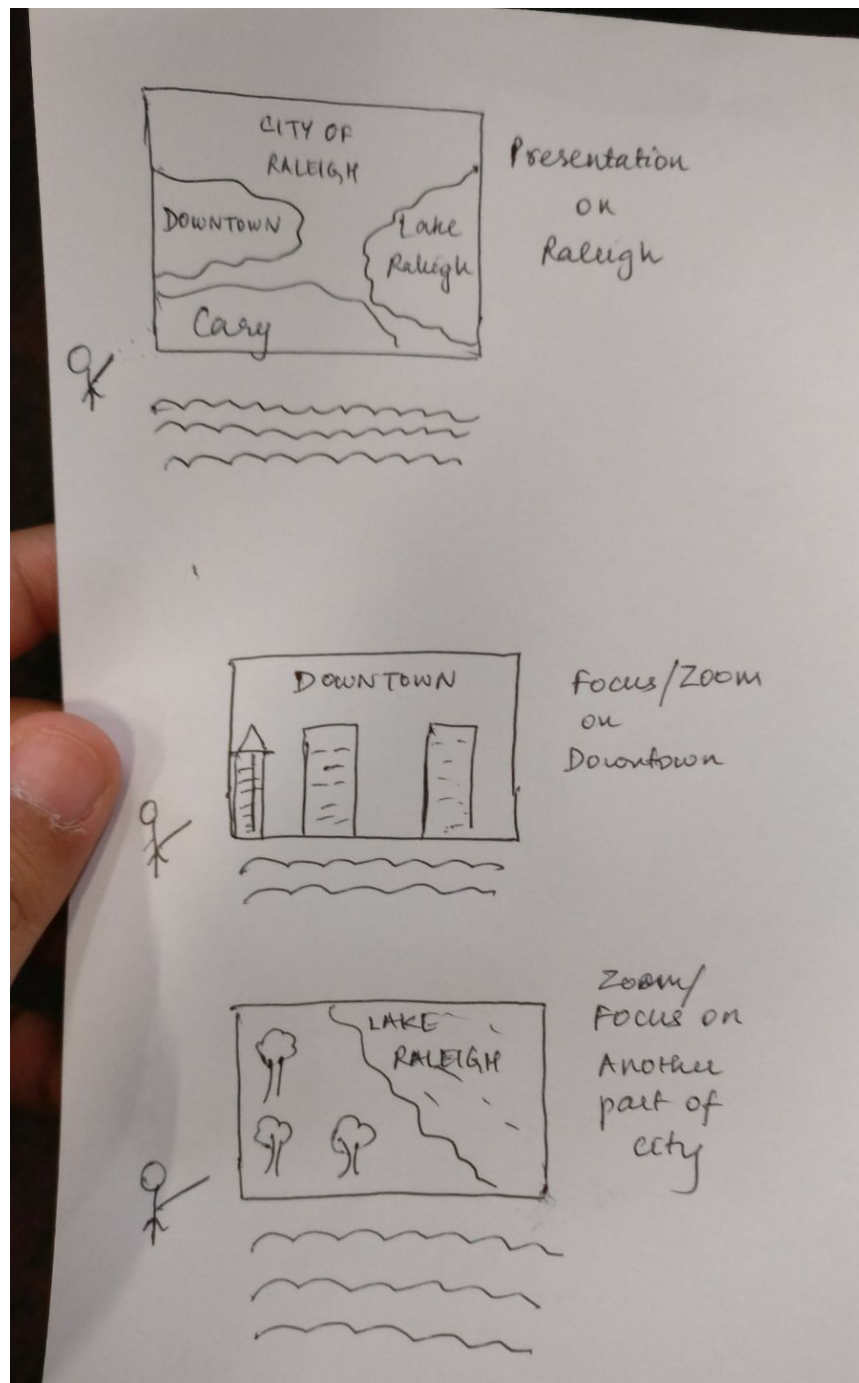 CITY OF
RALEIGH
DOWNTOWN
Lake
Raleigh
Cary
Presentation
on
Raleigh
DOWNTOWN
Focus/Zoom
on
Downtown
LAKE
RALEIGH
Zoom/
Focus on
Another
part of
city